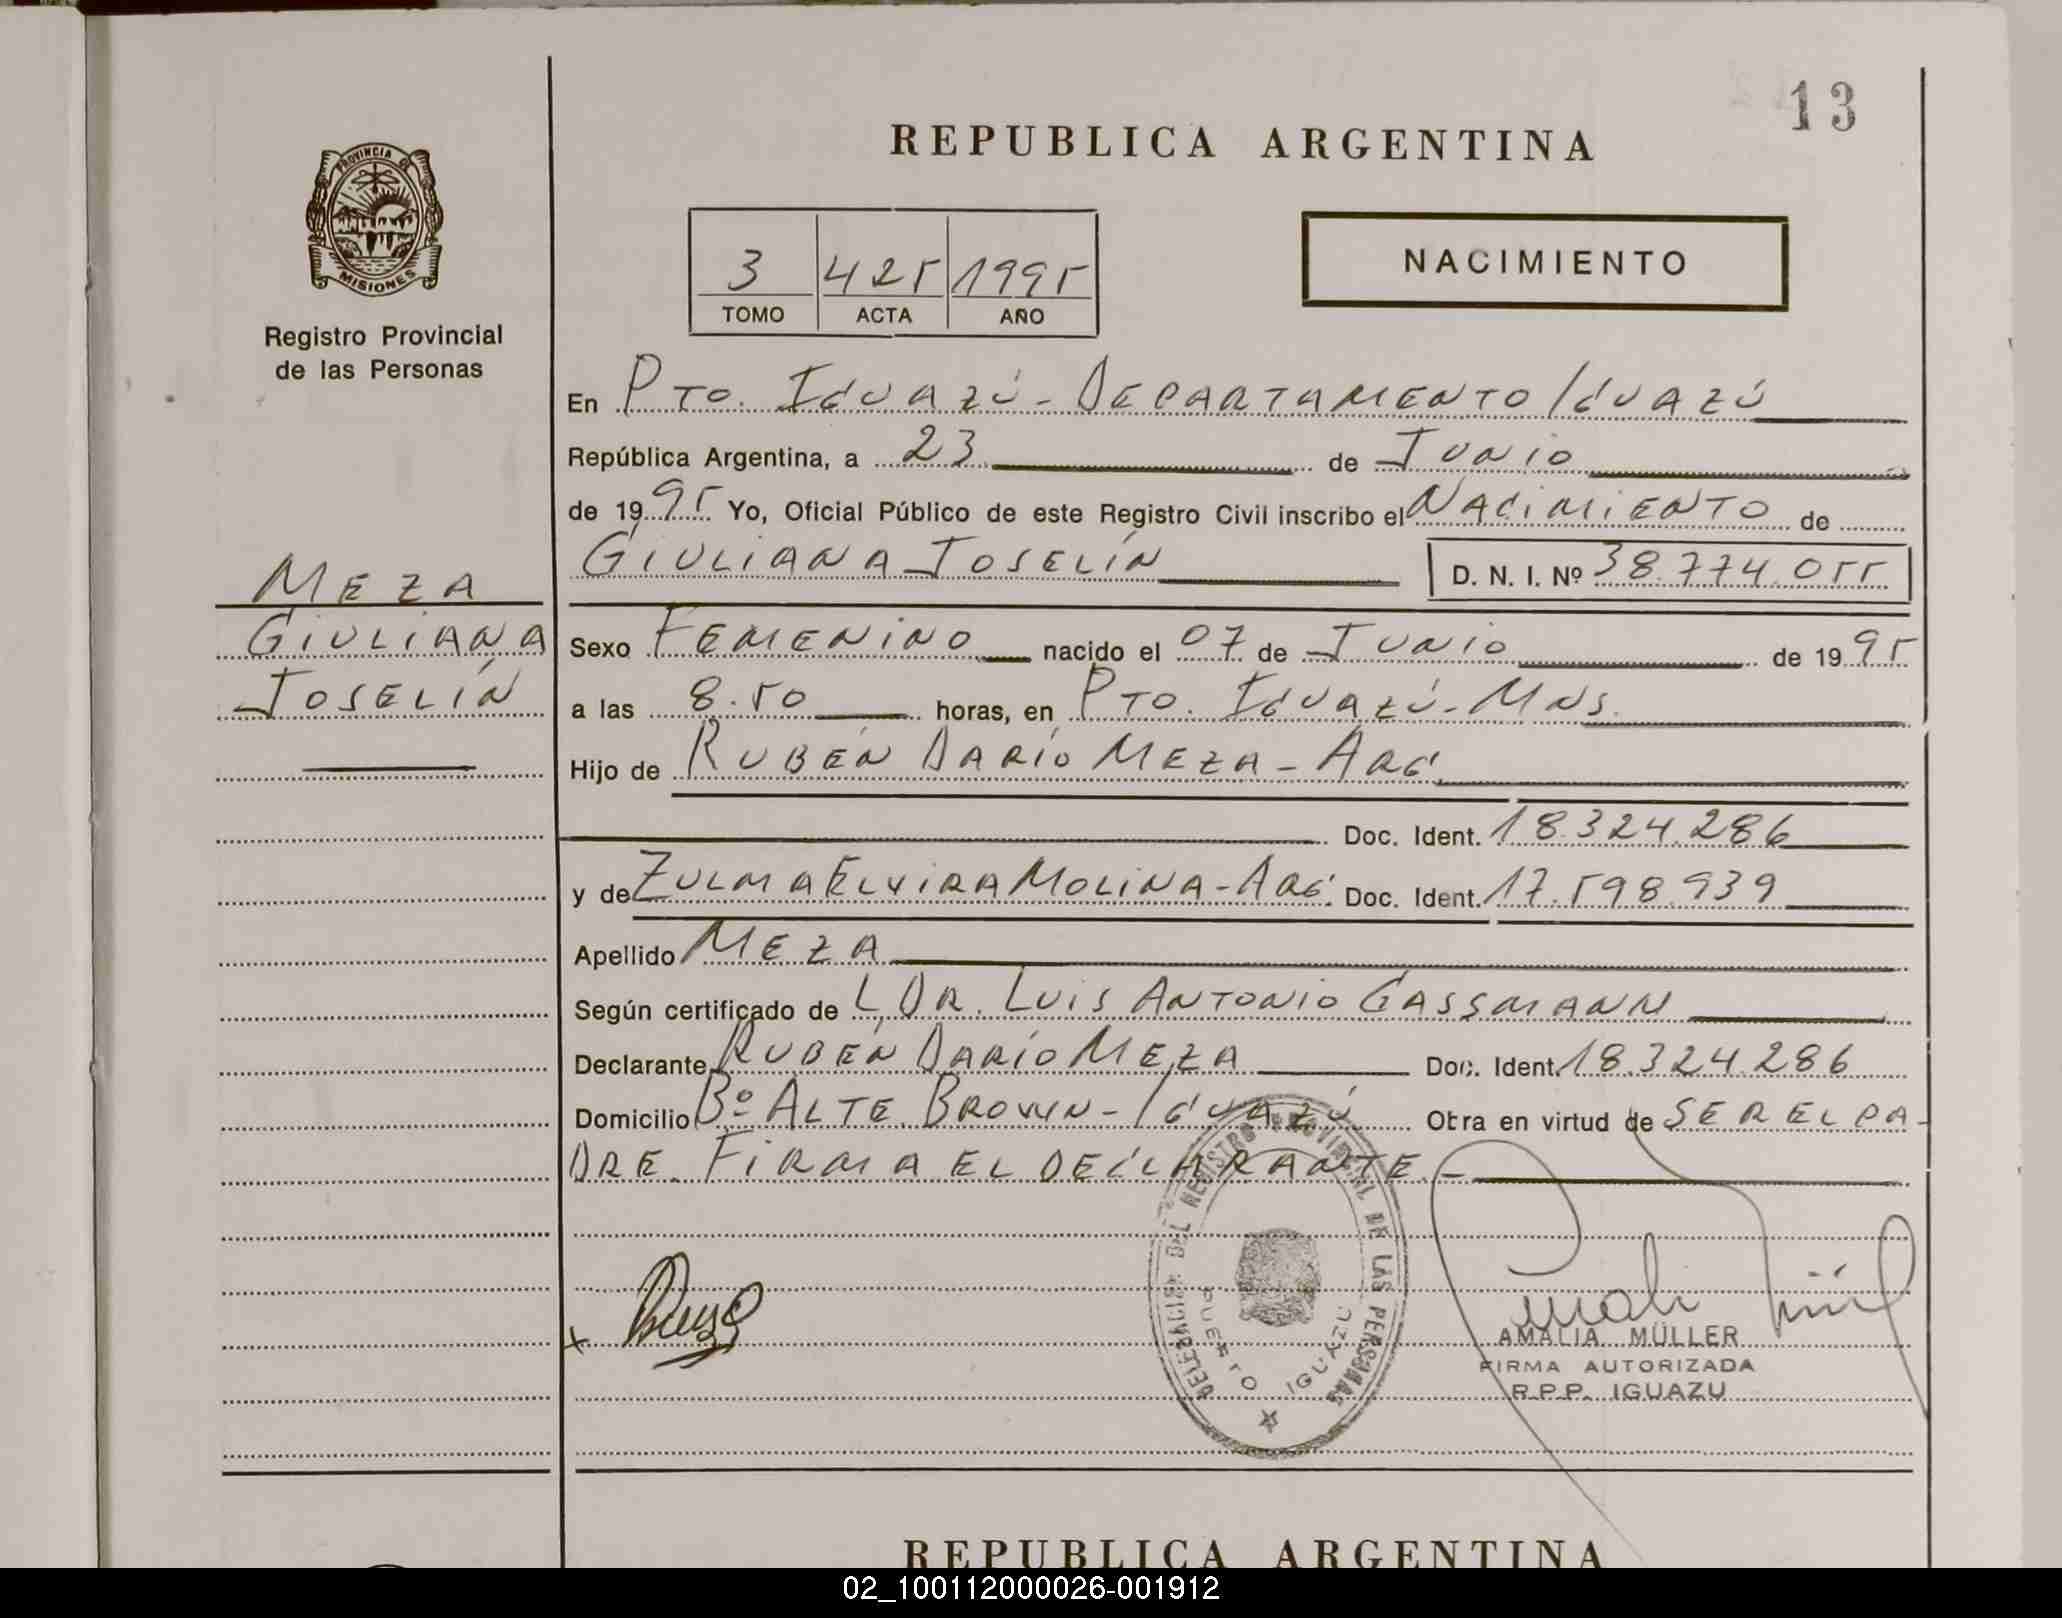 13
REPUBLICA ARGENTINA
PROVINCIA DE
MISIONES
Registro Provincial
de las Personas
3 425 1995
TOMO ACTA AÑO
NACIMIENTO
En PTO. IGUAZÚ - DEPARTAMENTO IGUAZÚ
República Argentina, a 23 de JUNIO
de 1995 Yo, Oficial Público de este Registro Civil inscribo el NACIMIENTO de
GIULIANA JOSELÍN D. N. I. Nº 38.774.055
MEZA
GIULIANA
JOSELÍN
Sexo FEMENINO nacido el 07 de JUNIO de 1995
a las 8.50 horas, en PTO. IGUAZÚ - MNS.
Hijo de RUBÉN DARÍO MEZA - ARG.
Doc. Ident. 18.324.286
y de ZULMA ELVIRA MOLINA - ARG. Doc. Ident. 17.598.939
Apellido MEZA
Según certificado de L, DR. LUIS ANTONIO GASSMANN
Declarante RUBÉN DARÍO MEZA Doc. Ident. 18.324.286
Domicilio Bº ALTE. BROWN - IGUAZÚ Otra en virtud de SER EL PA-
DRE. FIRMA EL DECLARANTE. -
DELEGACIÓN DEL REGISTRO PROVINCIAL DE LAS PERSONAS
PUERTO IGUAZU
x
AMALIA MÜLLER
FIRMA AUTORIZADA
R.P.P. IGUAZU
REPUBLICA ARGENTINA
02_100112000026-001912